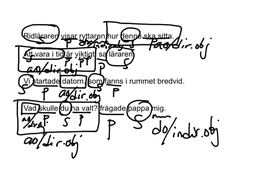 Ridläraren visar ryttaren hur denne ska sitta. P ao/dir.obj
S P P
Att vara i tid är viktigt, sa läraren.
ao/dir.obj P S
Vi startade datorn som fanns i rummet bredvid.
S P ao/dir.obj S P
Vad skulle du ha valt? frågade pappa mig.
P S P P S do/indir.obj
ao/dir.obj